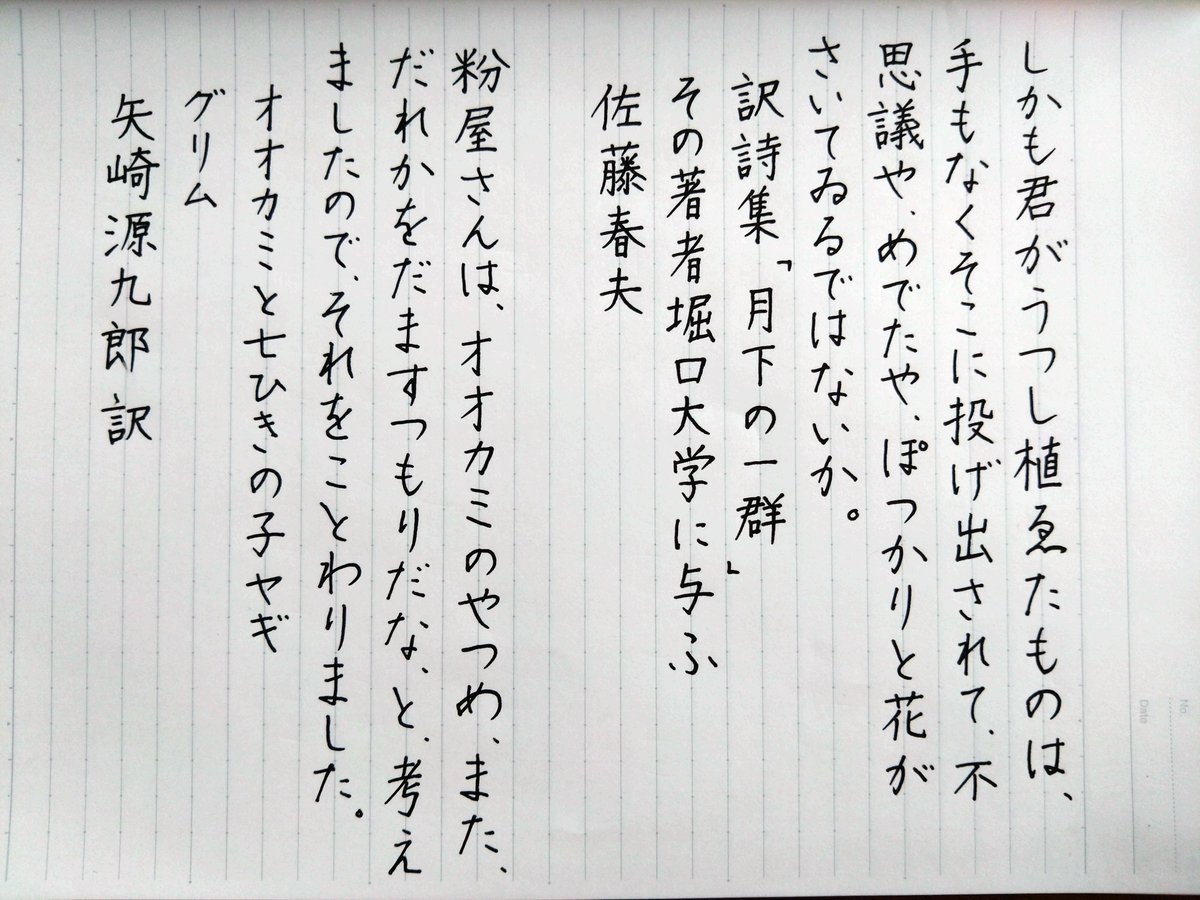 しかも君がうつし植ゑたものは、
手もなくそこに投げ出されて、不
思議や、めでたや、ぽつかりと花が
さいてゐるではないか。
訳詩集「月下の一群」
その著者堀口大学に与ふ
佐藤春夫
粉屋さんは、オオカミのやつめ、また、
だれかをだますつもりだな、と、考え
ましたので、それをことわりました。
オオカミと七ひきの子ヤギ
グリム
矢崎源九郎 訳
No
Date